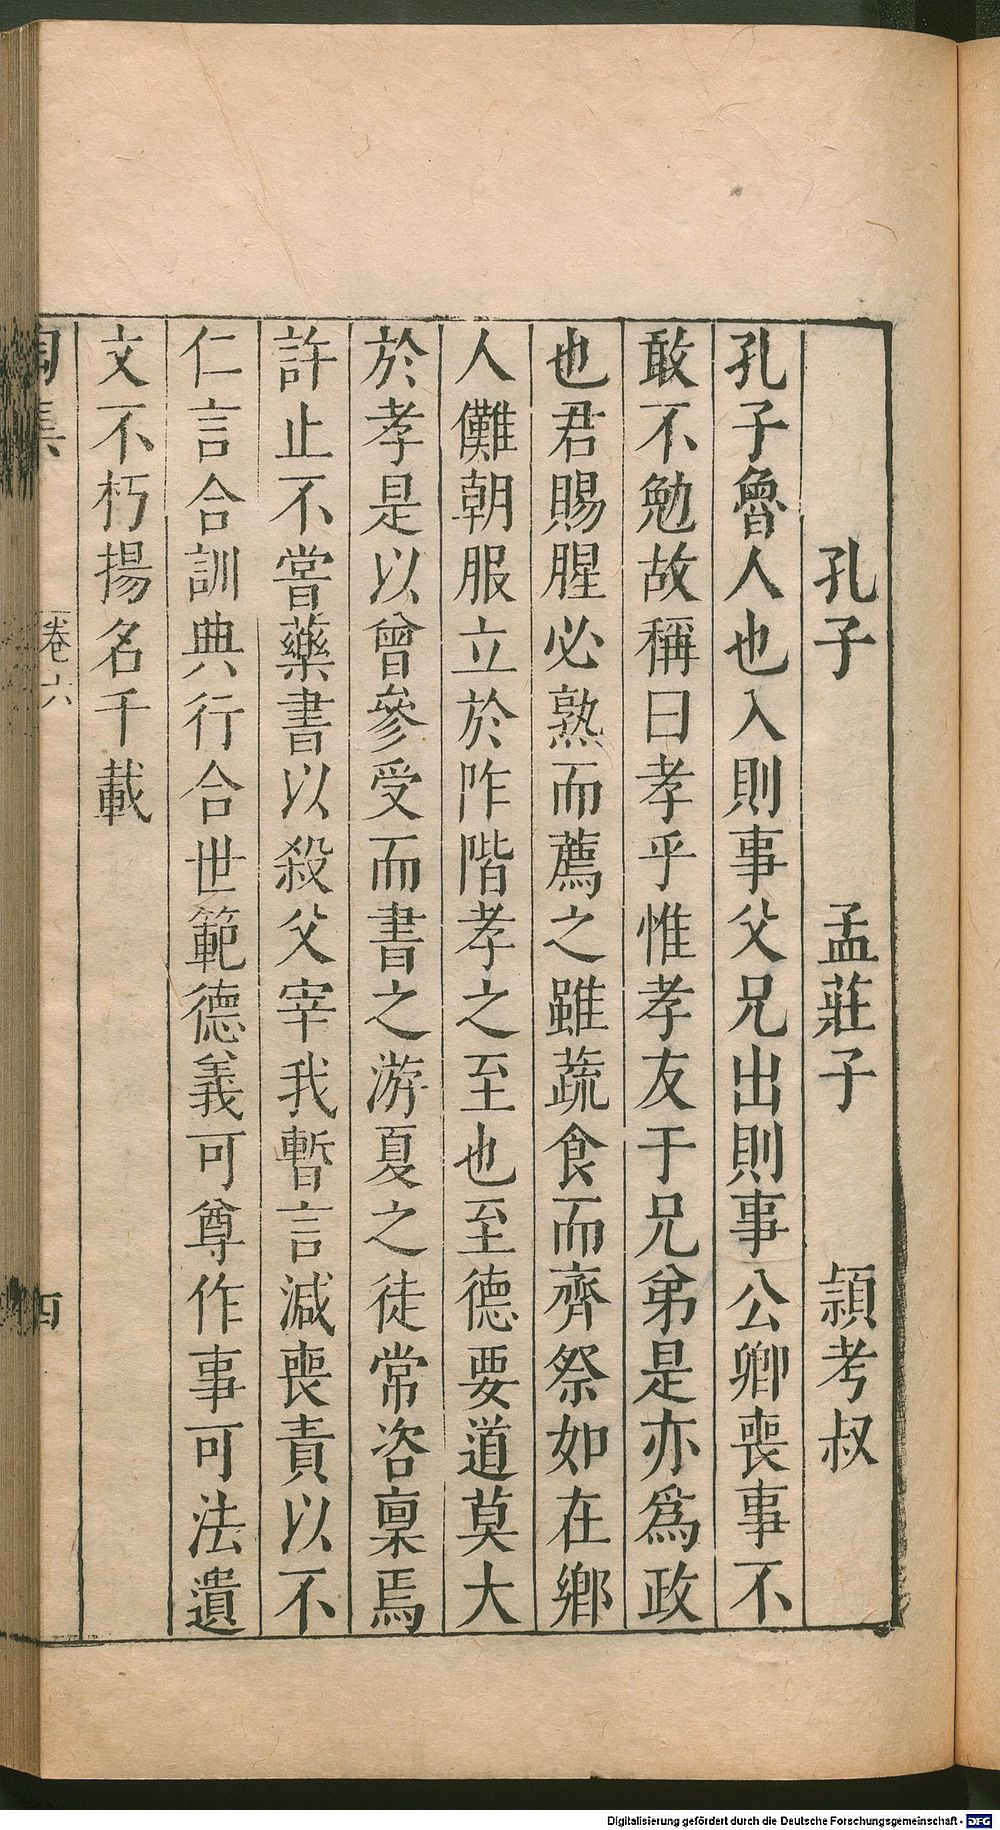 孔子　孟莊子　頴考叔
孔子魯人也入則事父兄出則事公卿喪事不
敢不勉故稱曰孝乎惟孝友于兄弟是亦爲政
也君賜腥必熟而薦之雖蔬食而齊祭如在鄉
人儺朝服立於阼階孝之至也至德要道莫大
於孝是以曾參受而書之游夏之徒常咨稟焉
許止不嘗藥書以殺父宰我暫言減喪責以不
仁言合訓典行合世範德義可尊作事可法遺
文不朽揚名千載
陶集　卷六　四
Digitalisierung gefördert durch die Deutsche Forschungsgemeinschaft - DFG